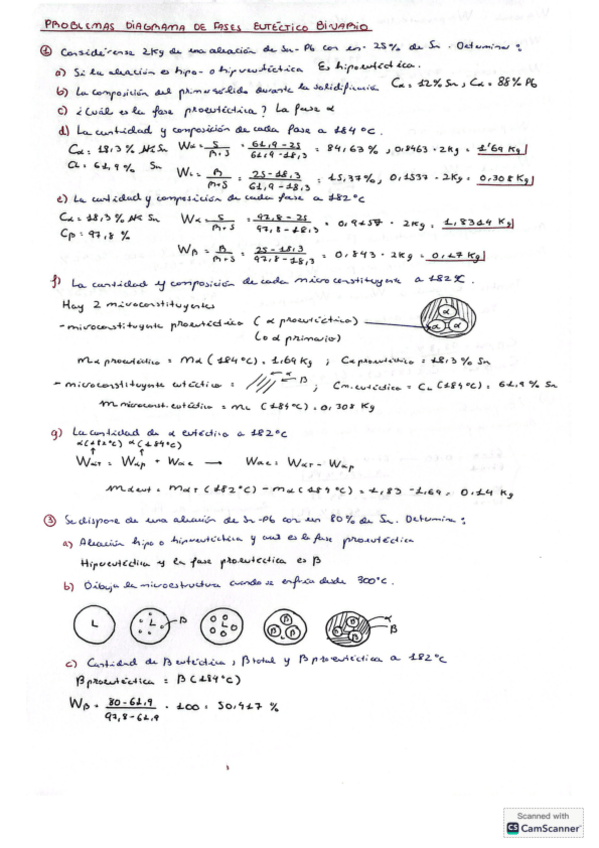 PROBLEMAS DIAGRAMA DE FASES EUTÉCTICO BINARIO
① Considérense 2Kg de una aleación de Sn-Pb con un 25% de Sn. Determina:
a) Si la aleación es hipo- o hipereutéctica Es hipoeutéctica.
b) La composición del primer sólido durante la solidificación Cα = 12% Sn, Cα = 88% Pb
c) ¿Cuál es la fase proeutéctica? La fase α
d) La cantidad y composición de cada fase a 184ºC.
Cα = 18,3% Sn Wα = S/R+S = 61,9-25/61,9-18,3 = 84,63%, 0,8463 · 2Kg = 1'69 Kg
CL = 61,9% Sn WL = R/R+S = 25-18,3/61,9-18,3 = 15,37%, 0,1537 · 2Kg = 0,308 Kg
e) La cantidad y composición de cada fase a 182ºC
Cα = 18,3% Sn Wα = S/R+S = 97,8-25/97,8-18,3 = 0,9157 · 2Kg = 1,8314 Kg
Cβ = 97,8%
Wβ = R/R+S = 25-18,3/97,8-18,3 = 0,843 · 2Kg = 0,17 Kg
f) La cantidad y composición de cada microconstituyente a 182ºC.
Hay 2 microconstituyentes
- microconstituyente proeutéctico (α proeutéctico)
(o α primario)
α
α α
mα proeutéctico = mα (184ºC) = 1,69 Kg ; Cα proeutéctico = 18,3% Sn
- microconstituyente eutéctico = α β ; Cm.eutéctico = CL (184ºC) = 61,9% Sn
m microconst. eutéctico = mL (184ºC) = 0,308 Kg
g) La cantidad de α eutéctico a 182ºC
α(182ºC) α(184ºC)
WαT = Wαp + Wαe → Wαe = WαT - Wαp
mα eut = mαT (182ºC) - mα (184ºC) = 1,83 - 1,69 = 0,14 Kg
③ Se dispone de una aleación de Sn-Pb con un 80% de Sn. Determina:
a) Aleación hipo o hipereutéctica y cual es la fase proeutéctica
Hipereutéctica y la fase proeutéctica es β
b) Dibuja la microestructura cuando se enfría desde 300ºC.
L L β L β β β β β β α β
c) Cantidad de β eutéctica, β total y β proeutéctica a 182ºC
β proeutéctica = β (184ºC)
Wβ = 80-61,9/97,8-61,9 · 100 = 50,417 %
Scanned with
CS CamScanner